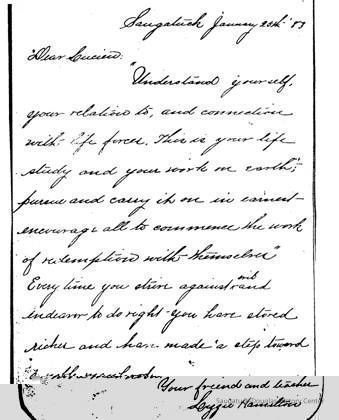 Saugatuck January 20th '83
"Dear Lucien:
"Understand yourself,
your relation to, and connection
with life forces. This is your life
study and your work on earth;
pursue and carry it on in earnest
encourage all to commence the work
of redemption with themselves"
Every time you strive against evil and
endeavor to do right you have stored
richer and have made a step toward
Your friend and teacher
Lizzie Hamilton